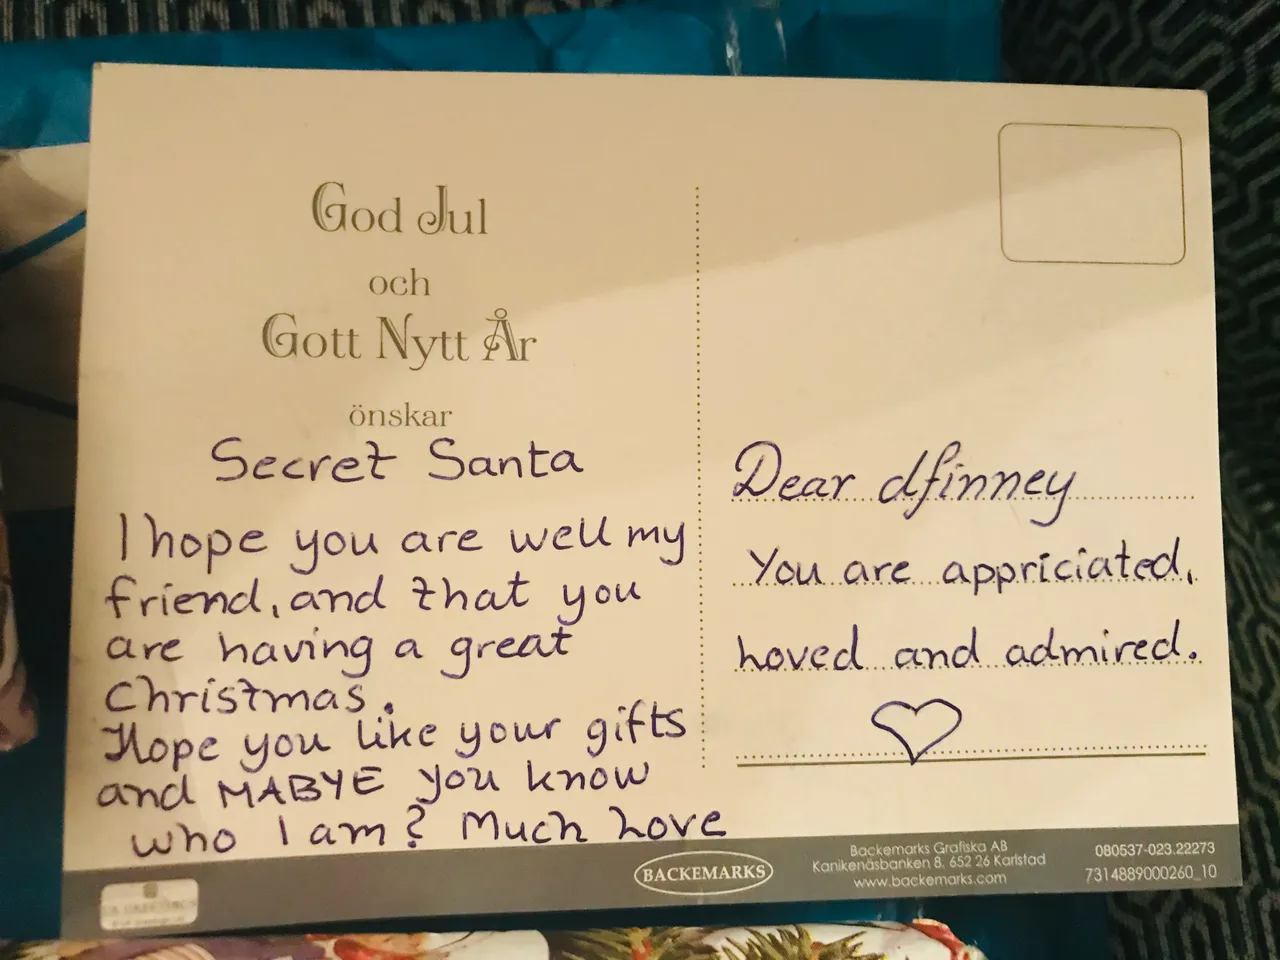 God Jul
och
Gott Nytt År
önskar
Secret Santa
I hope you are well my
friend, and that you
are having a great
Christmas.
Hope you like your gifts
and MABYE you know
who I am? Much Love
Dear dfinney
You are appriciated,
loved and admired.
BACKEMARKS
Backemarks Grafiska AB
Kanikenäsbanken 8, 652 26 Karlstad
www.backemarks.com
080537-023.22273
7314889000260_10